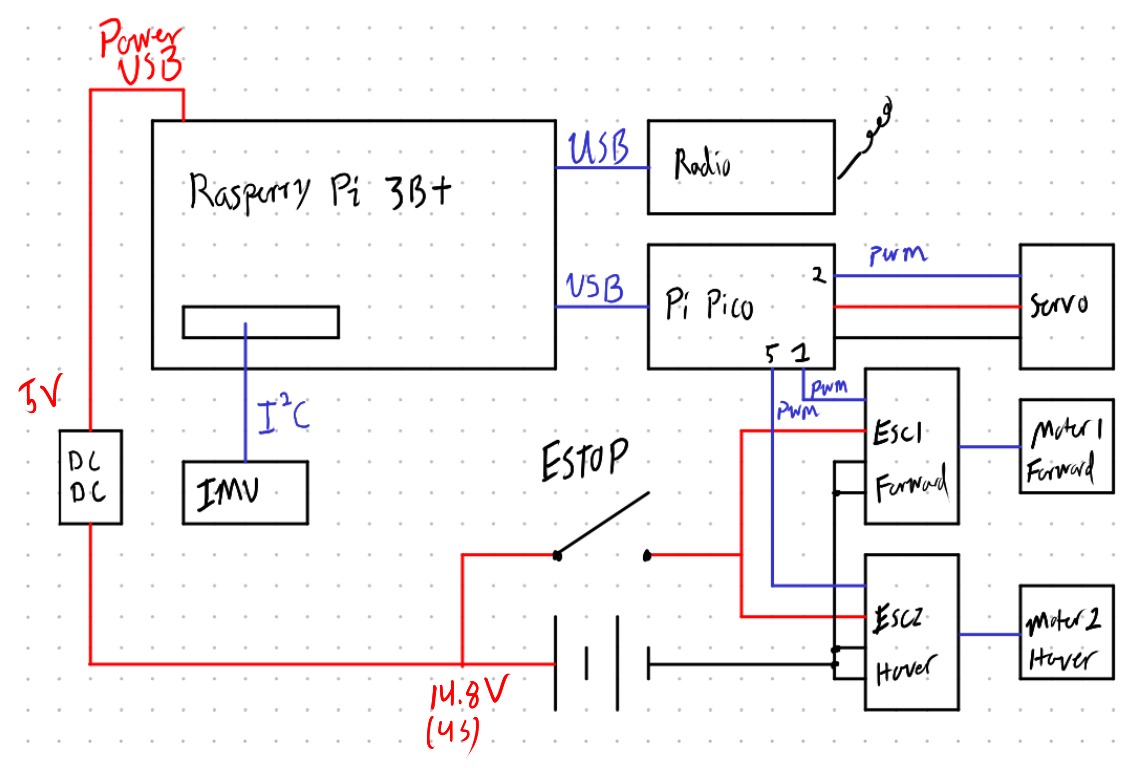 Power
USB
Rasperry Pi 3B+
USB
Radio
USB
Pi Pico
2
5 1
PWM
Servo
PWM
PWM
5V
DC
DC
I²C
IMU
ESTOP
ESC1
Forward
Motor1
Forward
ESC2
Hover
Motor2
Hover
14.8V
(4s)